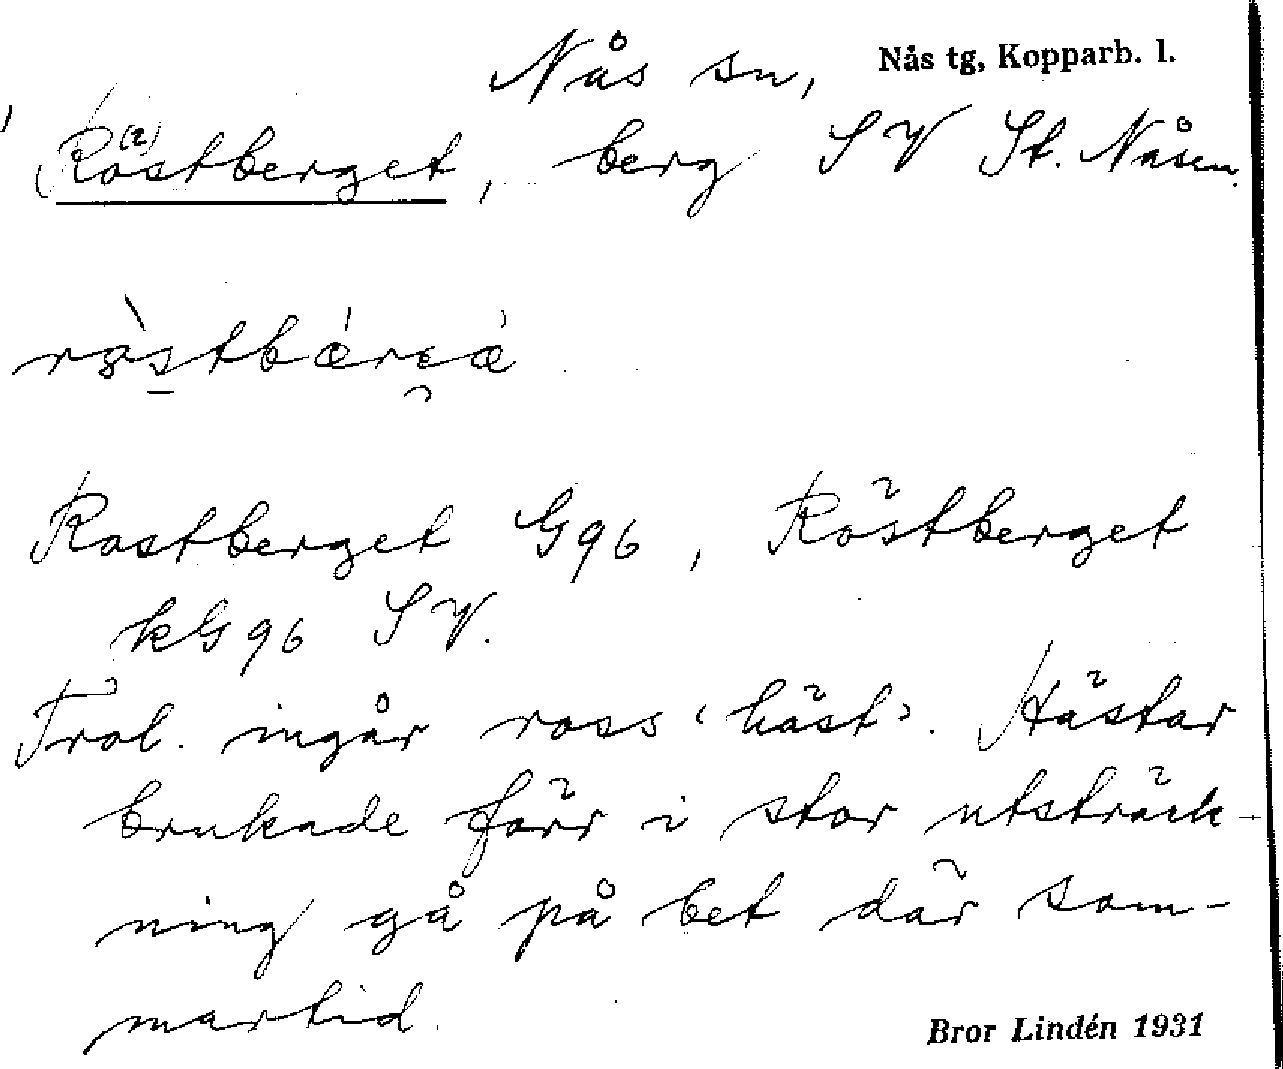 Nås sn, Nås tg, Kopparb. l.
Röstberget, berg SV St. Nåsen.
Rostberget G96, Röstberget
kG96 SV.
Trol. ingår ross ‹häst›. Hästar
brukade förr i stor utsträck-
ning gå på bet där som-
martid.
Bror Lindén 1931